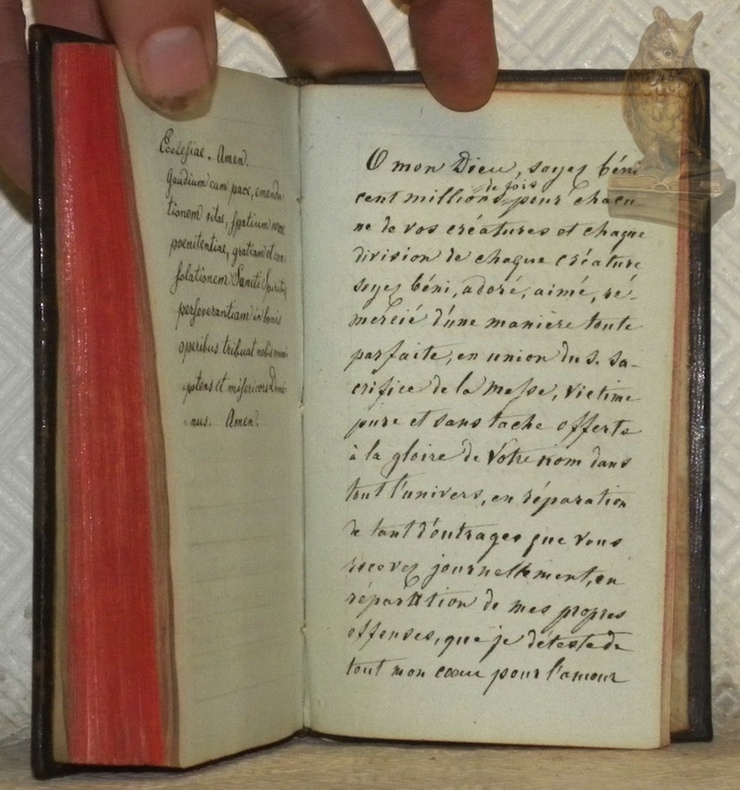 Ecclesiae. Amen.
Gaudium cum pace, emenda
tionem vitae, spatium verae
poenitentiae, gratiam et con
solationem Sancti Spiritus
perseverantiam in bonis
operibus tribuat nobis omni
potens et misericors Domi
nus. Amen.
O mon Dieu, soyez béni
de fois
cent millions pour chacu
ne de vos créatures et chaque
division de chaque créature
soyez béni, adoré, aimé, re-
mercié d'une manière toute
parfaite, en union du s. sa-
crifice de la Messe, victime
pure et sans tache offerte
à la gloire de Votre nom dans
tout l'univers, en réparation
de tant d'outrages que vous
recevez journellement, en
réparation de mes propres
offenses, que je déteste de
tout mon cœur pour l'amour